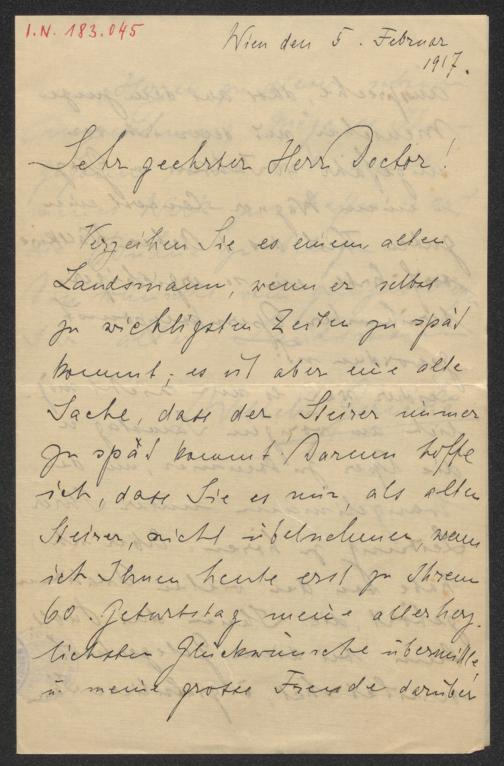 I.N. 183.045
Wien den 5. Februar
1917.
Sehr geehrter Herr Doctor!
Verzeihen Sie es einem alten
Landsmann, wenn er selbst
zu wichtigsten Zeiten zu späd
kommt; es ist aber eine alte
Sache, dass der Steirer immer
zu späd kommt. Darum hoffe
ich, dass Sie es mir, als alten
Steirer, nicht übelnehmen, wenn
ich Ihnen heute erst zu Ihrem
60. Geburtstag meine allerherz-
lichsten Glückwünsche übermittle,
u meine grosse Freude darüber